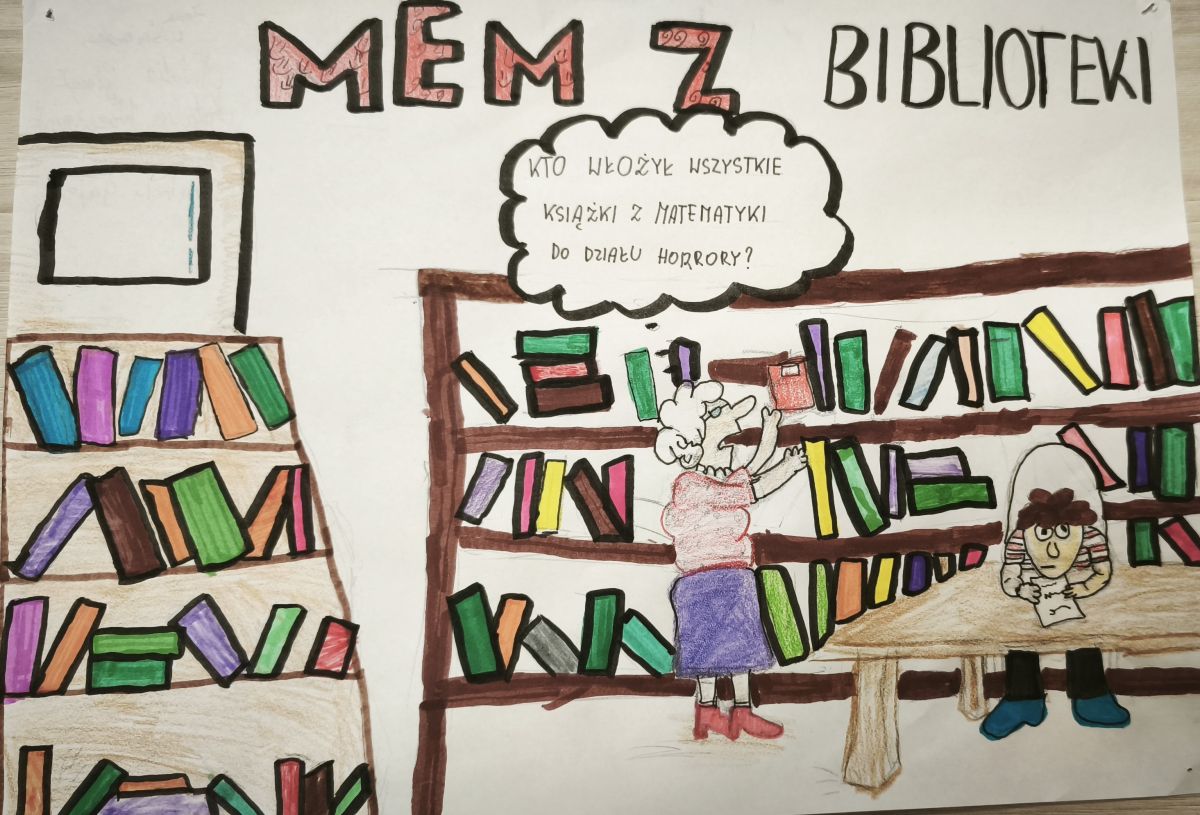 MEM Z BIBLIOTEKI
KTO WŁOŻYŁ WSZYSTKIE
KSIĄŻKI Z MATEMATYKI
DO DZIAŁU HORRORY?